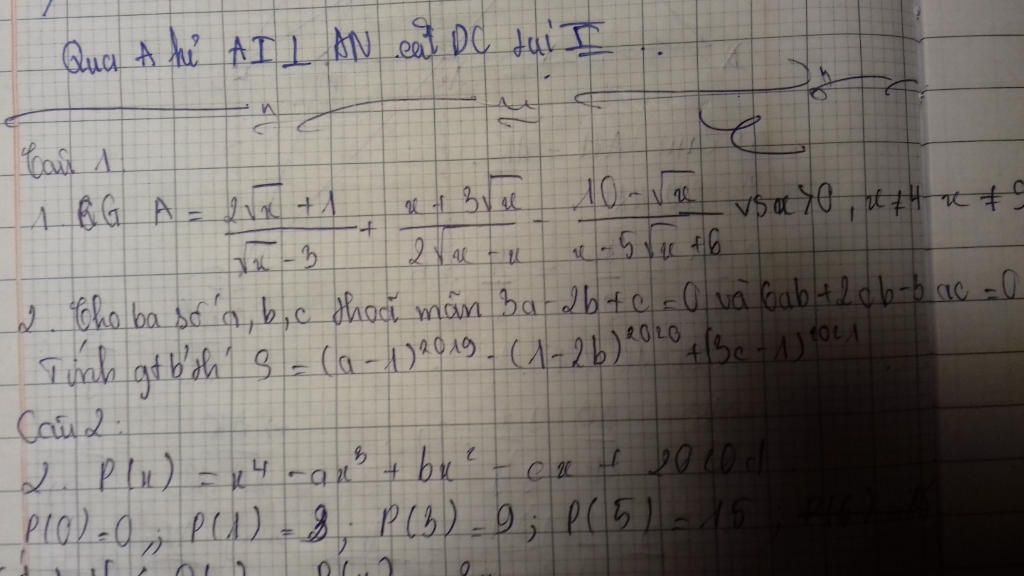 Qua A kẻ AI ⊥ AN cắt DC tại I
Câu 1
1. RG A = (2√x + 1)/(√x - 3) + (x + 3√x)/(2√x - x) - (10 - √x)/(x - 5√x + 6) với x > 0, x ≠ 4 x ≠ 9
2. Cho ba số a, b, c thoả mãn 3a - 2b + c = 0 và 6ab + 2cb - 3ac = 0
Tính gtbth S = (a - 1)^2019 - (1 - 2b)^2020 + (3c - 1)^2021
Câu 2:
2. P(x) = x^4 - ax^3 + bx^2 - cx + 2020d
P(0) = 0 ; P(1) = 3 ; P(3) = 9 ; P(5) = 15 ;